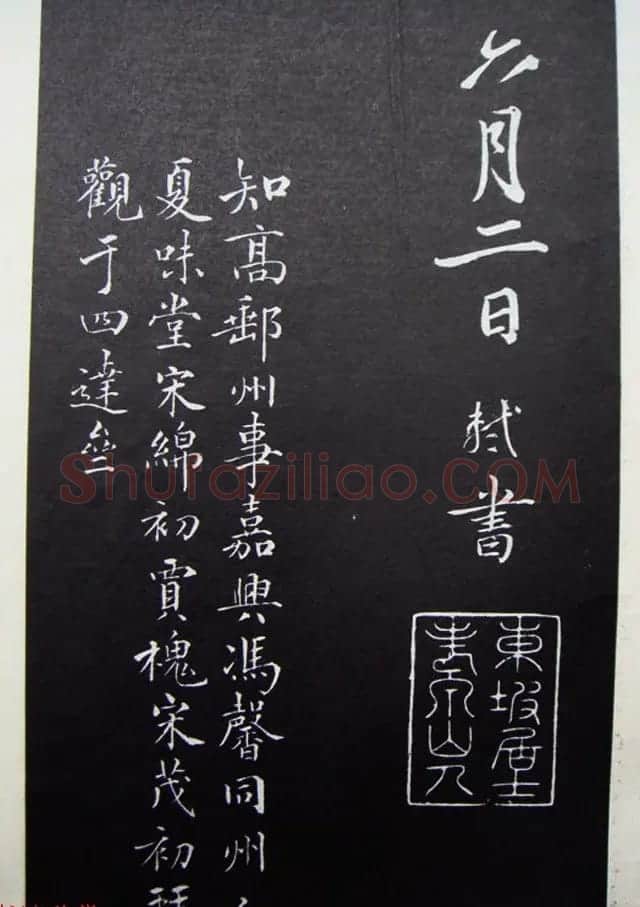 六月二日 軾書
東坡居士
老泉山人
知高郵州事嘉興馮馨同州人
夏味堂宋綿初賈槐宋茂初
觀于四達
Shufaziliao.COM